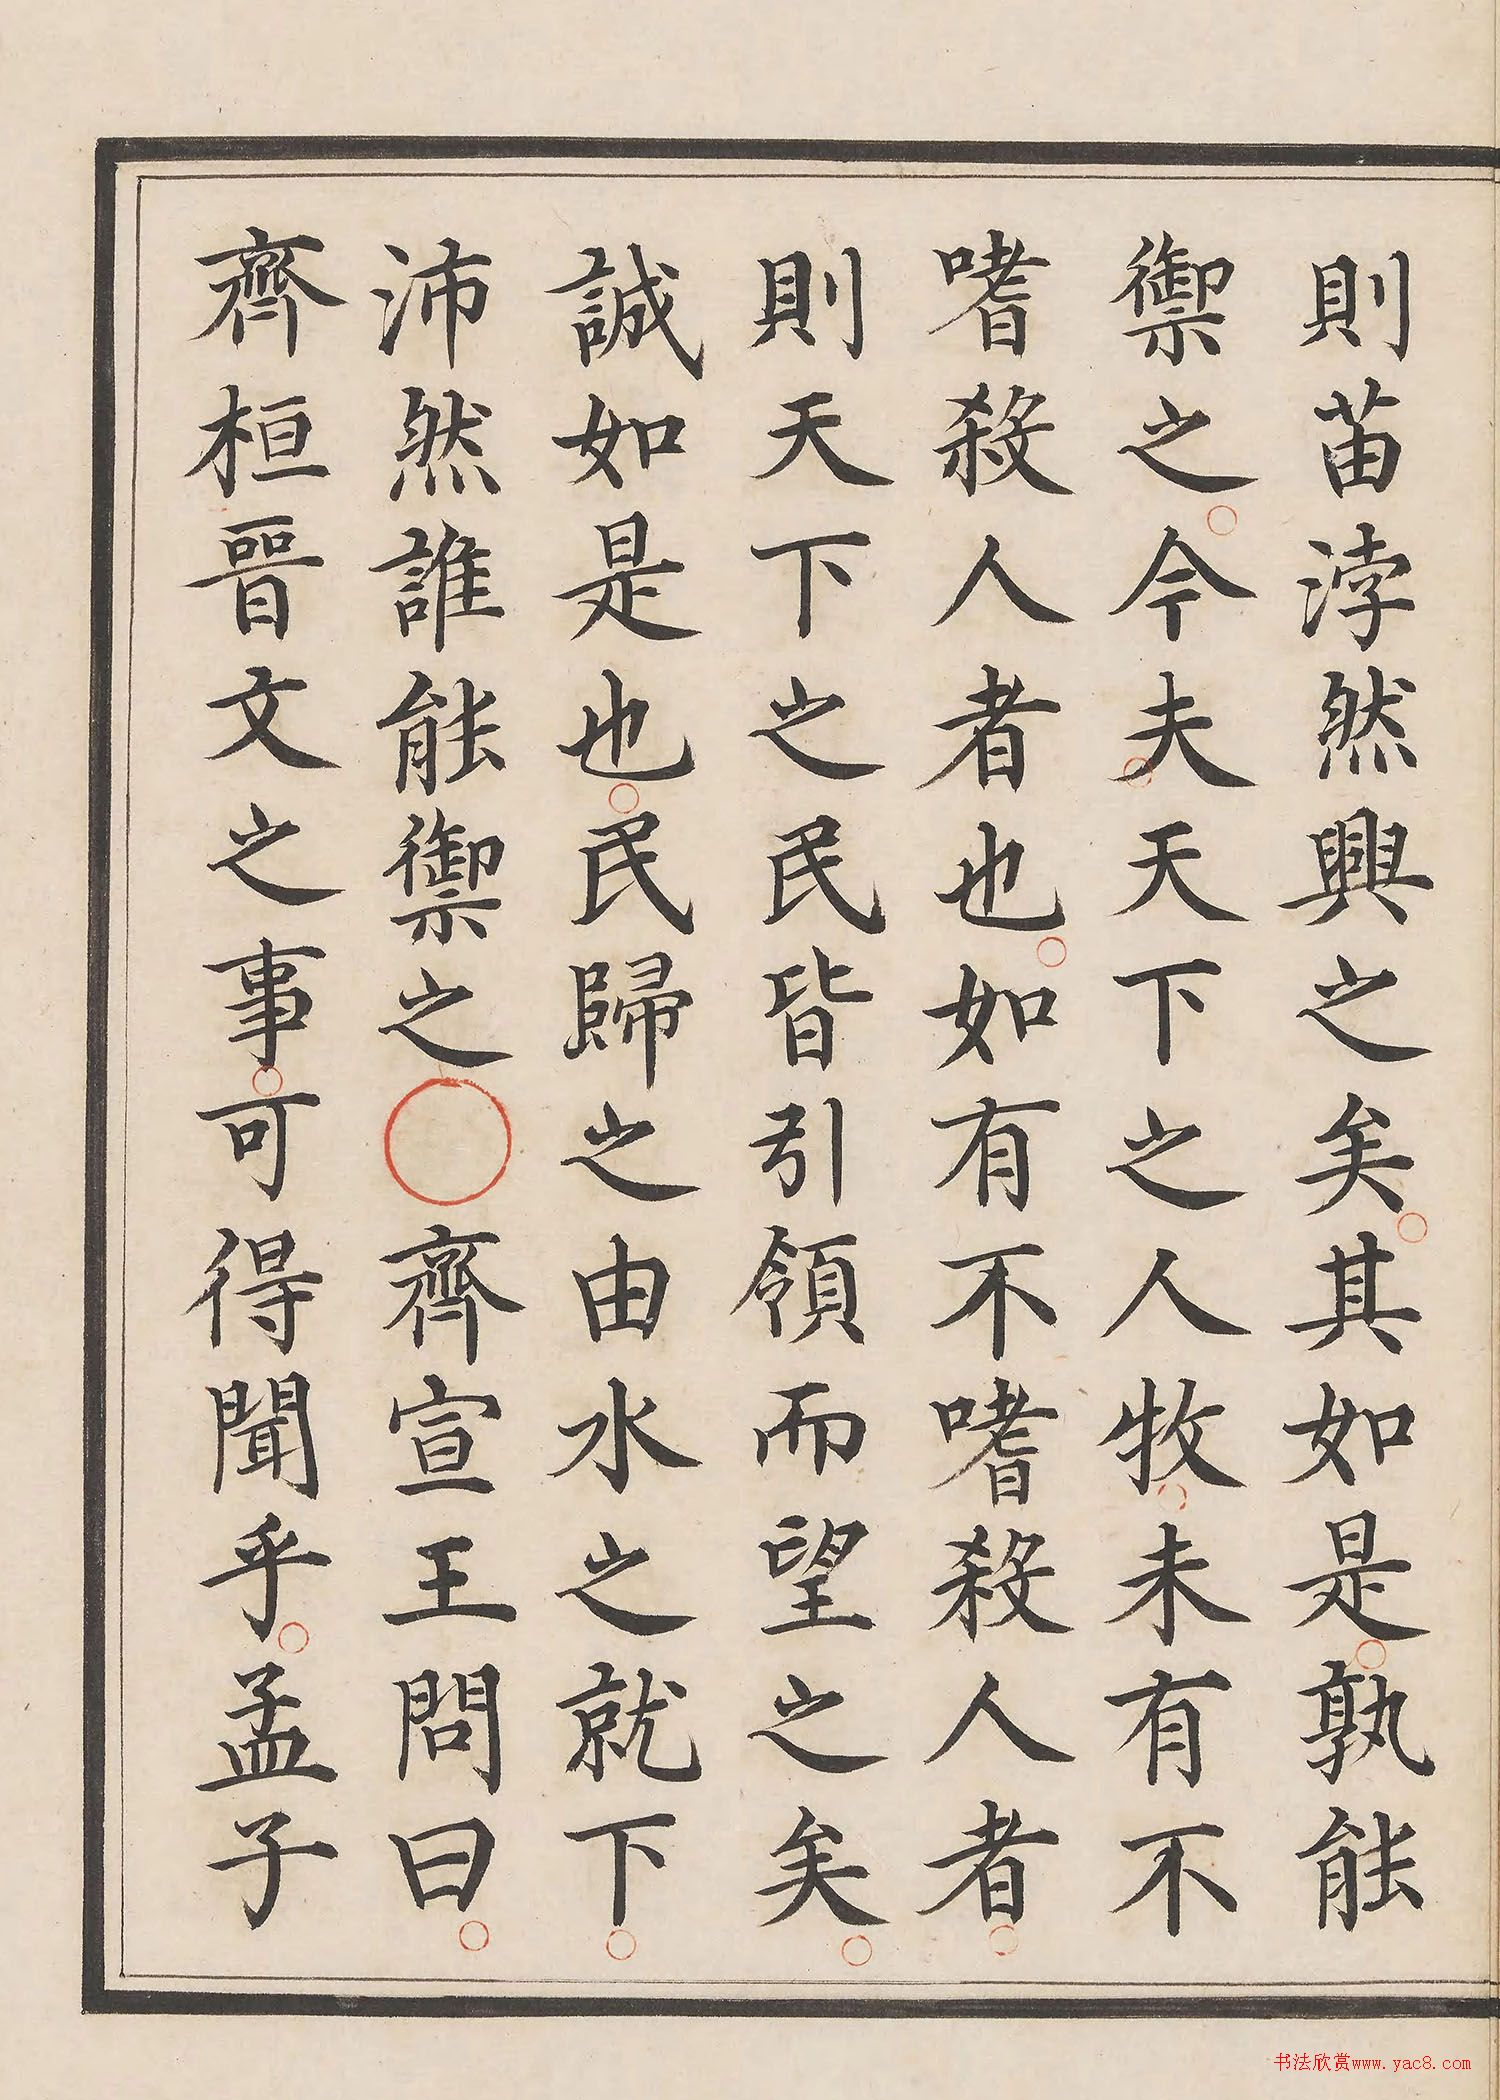 則苗浡然興之矣○其如是○孰能
禦之○今夫○天下之人牧○未有不
嗜殺人者也○如有不嗜殺人者○
則天下之民皆引領而望之矣○
誠如是也○民歸之由水之就下○
沛然誰能禦之○齊宣王問曰○
齊桓晉文之事○可得聞乎○孟子
书法欣赏www.yac8.com